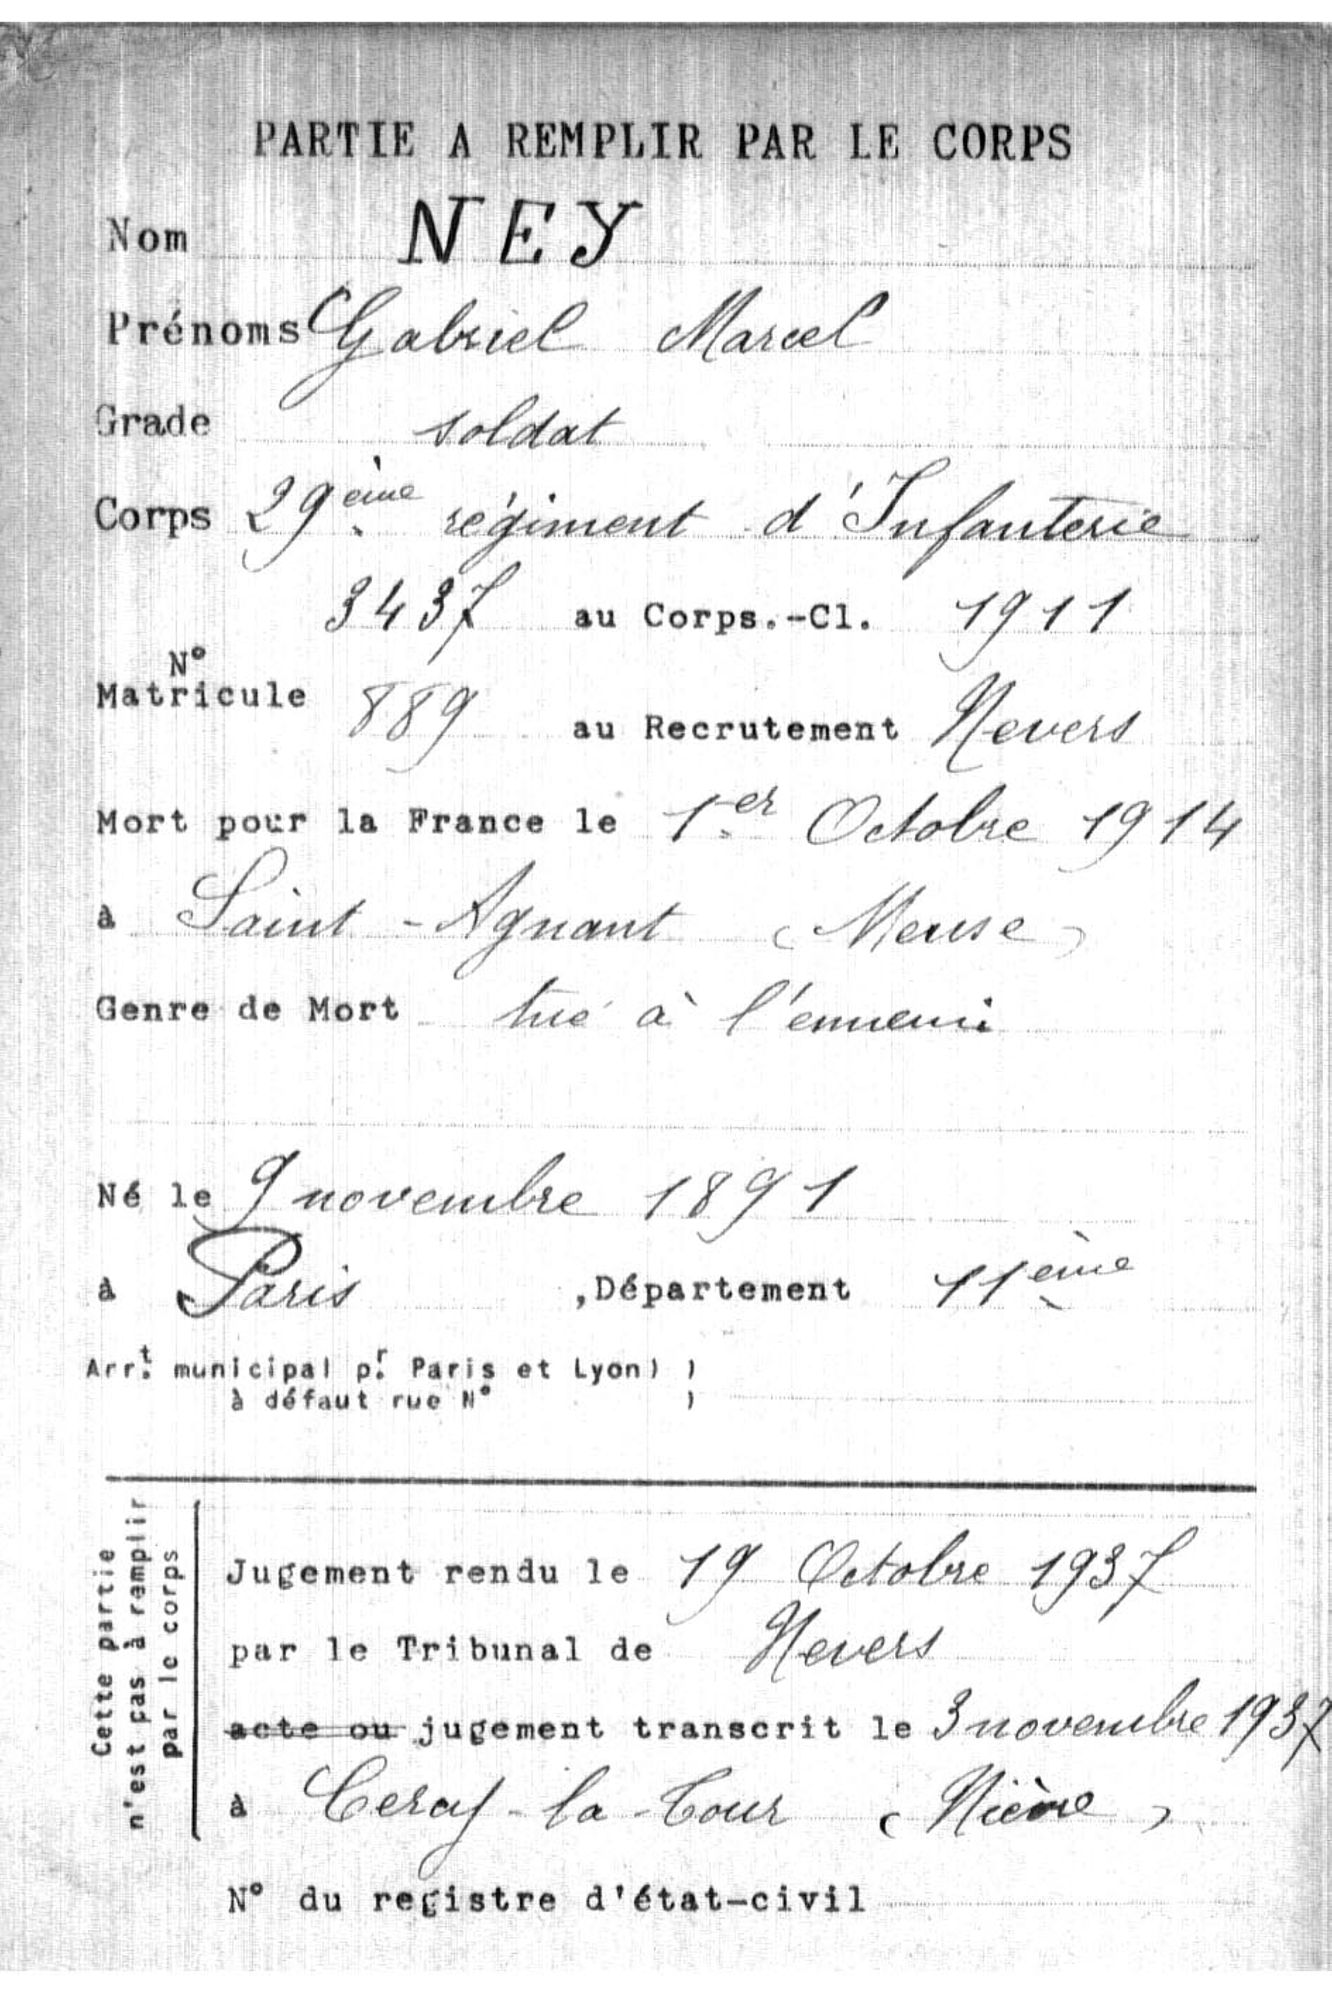 PARTIE A REMPLIR PAR LE CORPS
Nom NEY
Prénoms Gabriel Marcel
Grade soldat
Corps 29ème régiment d'Infanterie
3437 au Corps.-Cl. 1911
N°
Matricule 889 au Recrutement Nevers
Mort pour la France le 1er Octobre 1914
à Saint-Agnant (Meuse)
Genre de Mort tué à l'ennemi
Né le 9 novembre 1891
à Paris ,Département 11ème
Arrt. municipal pr. Paris et Lyon) )
à défaut rue N° )
Cette partie
n'est pas à remplir
par le corps
Jugement rendu le 19 Octobre 1937
par le Tribunal de Nevers
acte ou jugement transcrit le 3 novembre 1937
à Cercy-la-Tour (Nièvre)
N° du registre d'état-civil